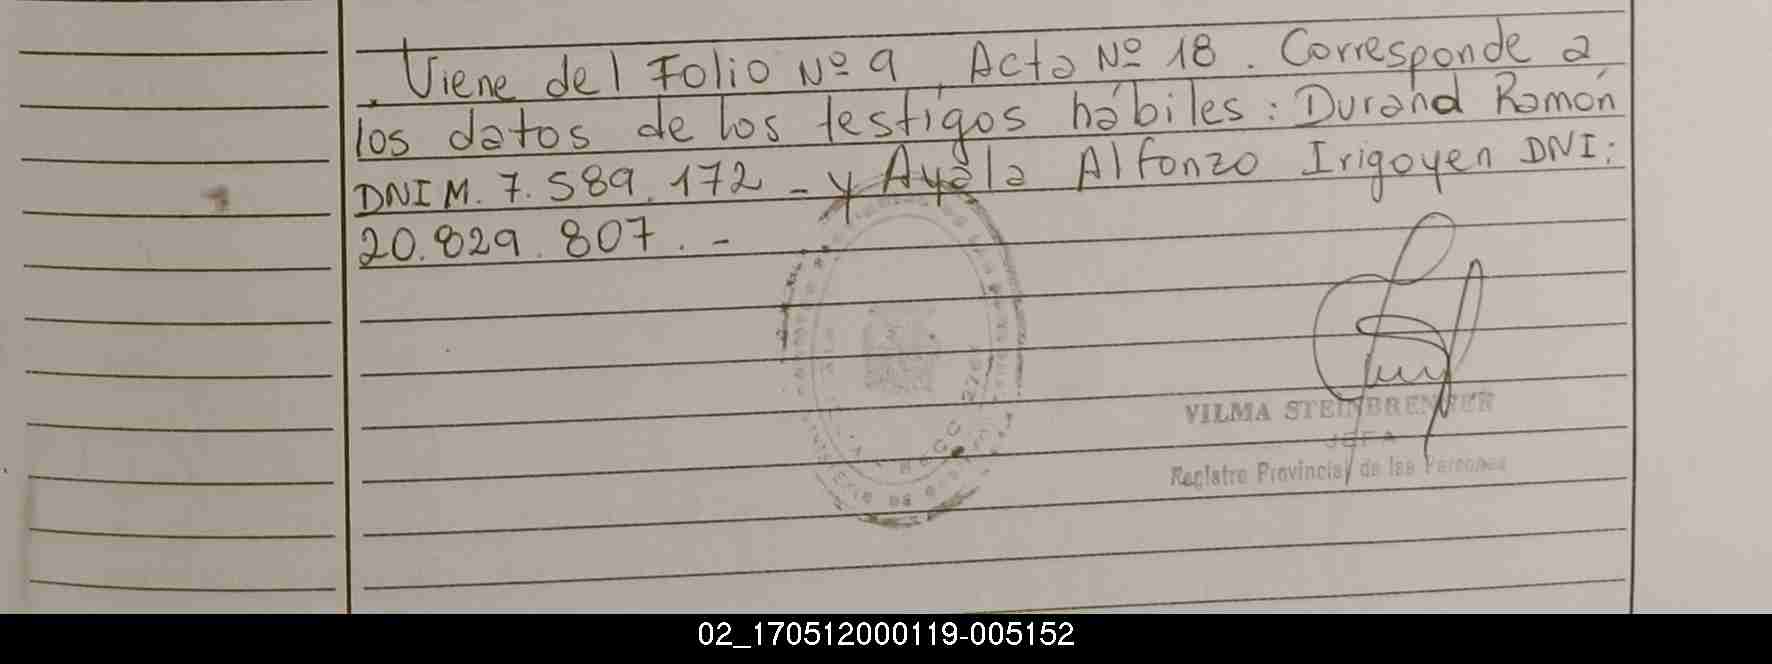 . Viene del Folio Nº 9, Acta Nº 18. Corresponde a
los datos de los testigos hábiles: Durand Ramón
DNI M. 7.589.172 - y Ayala Alfonzo Irigoyen DNI:
20.829.807. -
VILMA STEINBRENNER
JEFA
Registro Provincial de las Personas
02_170512000119-005152